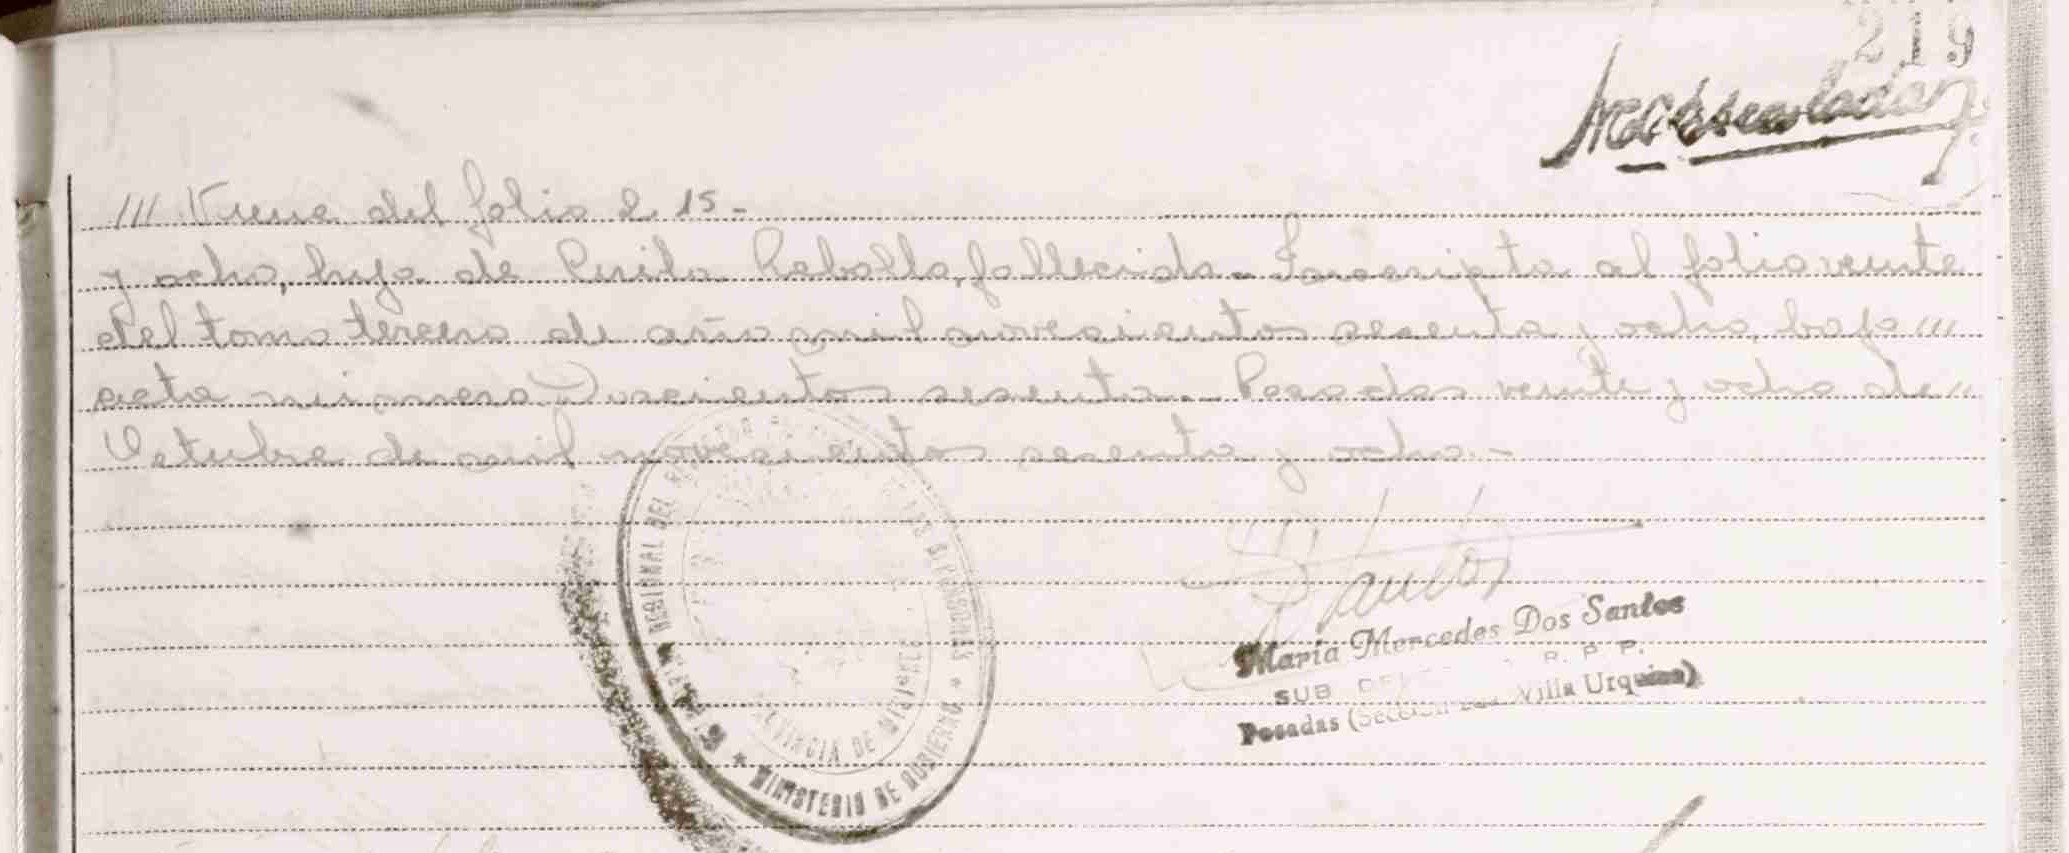 219
/// Viene del folio 215.-
y ocho, hija de Perila Rebollo, fallecida.- Inscripta al folio veinte
del tomo tercero de año mil novecientos sesenta y ocho, bajo ///
acta número Doscientos sesenta.- Posadas veinte y ocho de //
Octubre de mil novecientos sesenta y ocho.-
REGIONAL DEL
DE LAS PERSONAS
MINISTERIO DE GOBIERNO
PROVINCIA DE MISIONES
María Mercedes Dos Santos
SUB R. P. P.
Posadas (Sección Villa Urquiza)